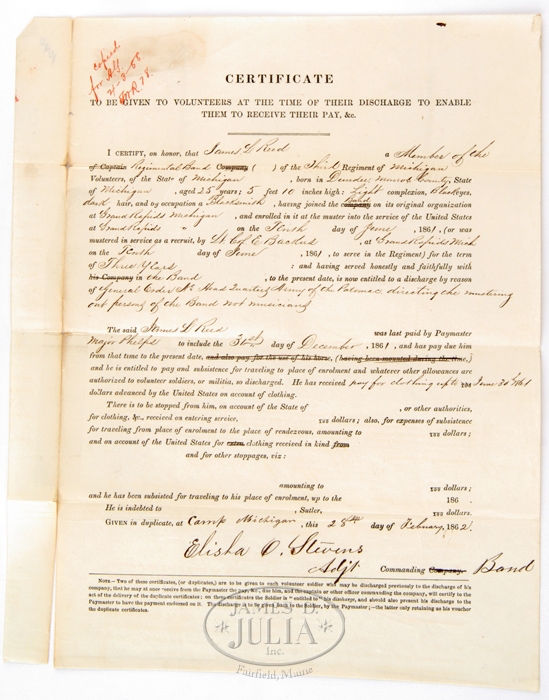 copied
for
CERTIFICATE
TO BE GIVEN TO VOLUNTEERS AT THE TIME OF THEIR DISCHARGE TO ENABLE
THEM TO RECEIVE THEIR PAY, &c.
I CERTIFY, on honor, that James L Reed a Member of the
of Captain Regimental Band Company ( ) of the Third Regiment of Michigan
Volunteers, of the State of Michigan, born in Dundee Monroe County, State
of Michigan, aged 25 years; 5 feet 10 inches high; Light complexion, Blue eyes,
dark hair, and by occupation a Blacksmith, having joined the company Band on its original organization
at Grand Rapids Michigan, and enrolled in it at the muster into the service of the United States
at Grand Rapids " on the Tenth day of June, 1861, (or was
mustered in service as a recruit, by Lt Col E Backus, at Grand Rapids Mich
on the Tenth day of June, 1861, to serve in the Regiment) for the term
of Three Years : and having served honestly and faithfully with
his Company in the Band, to the present date, is now entitled to a discharge by reason
of General Order Head Quarters Army of the Potomac directing the mustering
out persons of the Band not musicians
The said James L Reed was last paid by Paymaster
Major Phelps to include the 31st day of December, 1861, and has pay due him
from that time to the present date, and also pay for the use of his horse, (having been mounted during the time.)
and he is entitled to pay and subsistence for traveling to place of enrolment and whatever other allowances are
authorized to volunteer soldiers, or militia, so discharged. He has received pay for clothing up to June 30th 1861
dollars advanced by the United States on account of clothing.
There is to be stopped from him, on account of the State of , or other authorities,
for clothing, &c., received on entering service, dollars; also, for expenses of subsistence
for traveling from place of enrolment to place of rendezvous, amounting to dollars;
and on account of the United States for extra clothing received in kind from
and for other stoppages, viz:
amounting to dollars;
and he has been subsisted for traveling to his place of enrolment, up to the 186 .
He is indebted to , Sutler, dollars.
GIVEN in duplicate, at Camp Michigan, this 28th day of February, 1862.
Elisha O. Stevens
Adjt Commanding Company. Band
NOTE.—Two of these certificates, (or duplicates,) are to be given to each volunteer soldier who may be discharged previously to the discharge of his
company, that he may at once receive from the Paymaster the pay, &c., due him, and the captain or other officer commanding the company, will certify to
the act of the delivery of the duplicate certificates: on these certificates the Soldier is "entitled to" his discharge, and should also present his discharge to the
Paymaster to have the payment endorsed on it. The discharge is to be given back to the Soldier, by the Paymaster;—the latter only retaining as his voucher
the duplicate certificates.
JAMES D.
JULIA
Inc.
Fairfield, Maine